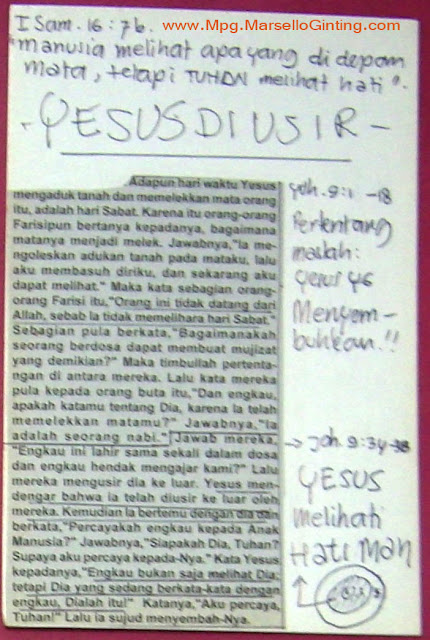 www.Mpg.MarselloGinting.com
I Sam. 16:7b.
"Manusia melihat apa yang di depan
mata, tetapi TUHAN melihat hati".
- YESUS DIUSIR -
Adapun hari waktu Yesus
mengaduk tanah dan memelekkan mata orang
itu, adalah hari Sabat. Karena itu orang-orang
Farisipun bertanya kepadanya, bagaimana
matanya menjadi melek. Jawabnya,"Ia me-
ngoleskan adukan tanah pada mataku, lalu
aku membasuh diriku, dan sekarang aku
dapat melihat." Maka kata sebagian orang-
orang Farisi itu,"Orang ini tidak datang dari
Allah, sebab Ia tidak memelihara hari Sabat."
Sebagian pula berkata,"Bagaimanakah
seorang berdosa dapat membuat mujizat
yang demikian?" Maka timbullah pertenta-
ngan di antara mereka. Lalu kata mereka
pula kepada orang buta itu,"Dan engkau,
apakah katamu tentang Dia, karena Ia telah
memelekkan matamu?" Jawabnya,"Ia
adalah seorang nabi." Jawab mereka,
"Engkau ini lahir sama sekali dalam dosa
dan engkau hendak mengajar kami?" Lalu
mereka mengusir dia ke luar. Yesus men-
dengar bahwa ia telah diusir ke luar oleh
mereka. Kemudian Ia bertemu dengan dia dan
berkata,"Percayakah engkau kepada Anak
Manusia?" Jawabnya,"Siapakah Dia, Tuhan?
Supaya aku percaya kepada-Nya." Kata Yesus
kepadanya,"Engkau bukan saja melihat Dia;
tetapi Dia yang sedang berkata-kata dengan
engkau, Dialah itu!" Katanya,"Aku percaya,
Tuhan!" Lalu ia sujud menyembah-Nya.
Yoh. 9:1 -18
Pertentang
masalah:
Yesus yg
Menyem-
buhkan.!!
→ Joh. 9:34-38
YESUS
melihati
HATI MAN